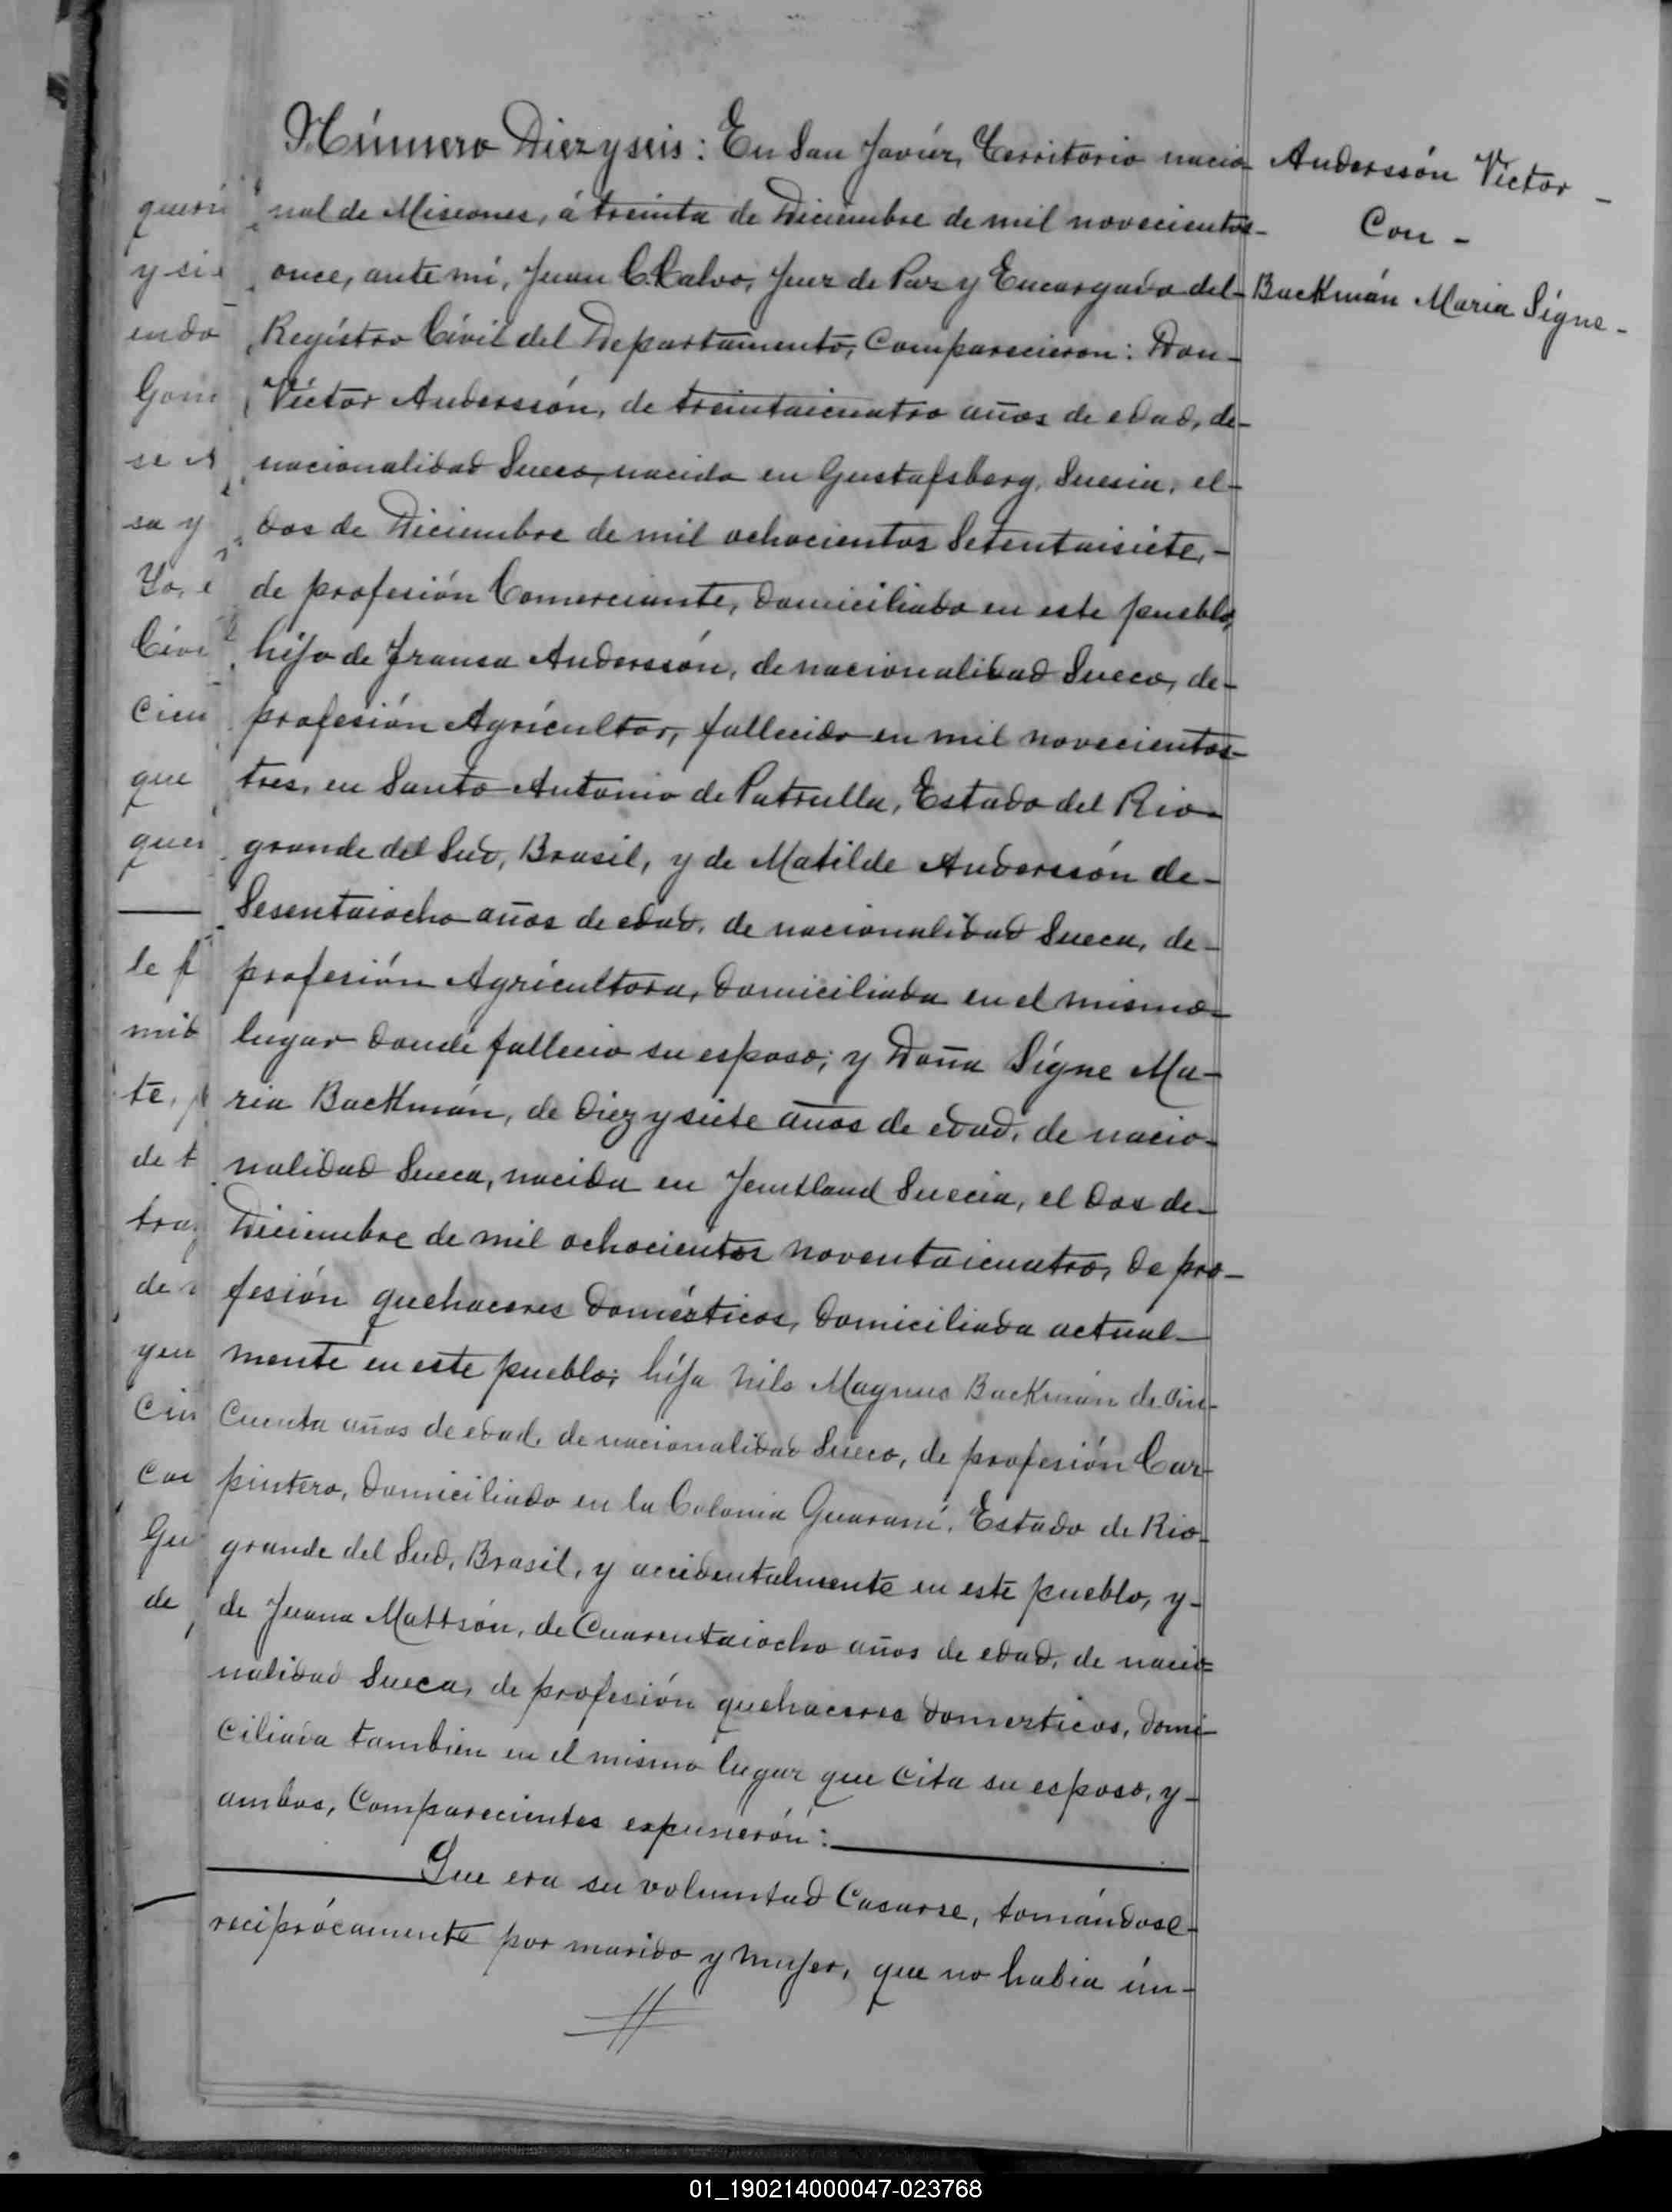 Número Diezyseis: En San Javiér, Territorio nacio-
nal de Misiones, á treinta de Diciembre de mil novecientos-
once, ante mí, Juan C. Calvo, Juez de Paz y Encargado del-
Regístro Civíl del Departamento, Comparecieron: Don-
Víctor Anderssón, de treintaicuatro años de edad, de-
nacionalidad Sueco, nacido en Gustafsberg, Suesia, el-
dos de Diciembre de mil ochocientos Setentaisiete,-
de profesión Comerciante, domiciliado en este pueblo,
hijo de Fransa Anderssón, de nacionalidad Sueco, de-
profesión Agrícultor, fallecido en mil novecientos-
tres, en Santo Antonio de Patrulla, Estado del Rio-
grande del Sud, Brasil, y de Matilde Anderssón de-
Sesentaiocho años de edad, de nacionalidad Sueca, de-
profesión Agrícultora, domiciliada en el mismo-
lugar donde fallecio su esposo; y Doña Sígne Ma-
ria Backmán, de diez y siete años de edad, de nacio-
nalidad Sueca, nacida en Jemtland Suecia, el dos de-
Diciembre de mil ochocientos noventaicuatro, de pro-
fesión quehaceres domésticos, domiciliada actual-
mente en este pueblo; hija Nils Magnus Backmán de Cin-
cuenta años de edad, de nacionalidad Sueco, de profesión Car-
pintero, domiciliado en la Colonia Guaraní, Estado de Rio-
grande del Sud, Brasil, y accidentalmente en este pueblo, y-
de Juana Mattsón, de Cuarentaiocho años de edad, de nacio-
nalidad Sueca, de profesión quehaceres domesticos, domi-
ciliada tambien en el mismo lugar que cita su esposo, y-
ambos, Comparecientes expusierón:
Que era su voluntad Casarse, tomándose-
recíprócamente por marido y mujer, que no habia ím-
Anderssón Víctor -
Con -
Backmán Maria Sígne -
y si
endo
Gom
sa y
Yo,
Civi
Cien
que
le f
mil
te, p
de t
de
Cin
Gu
de
01_190214000047-023768